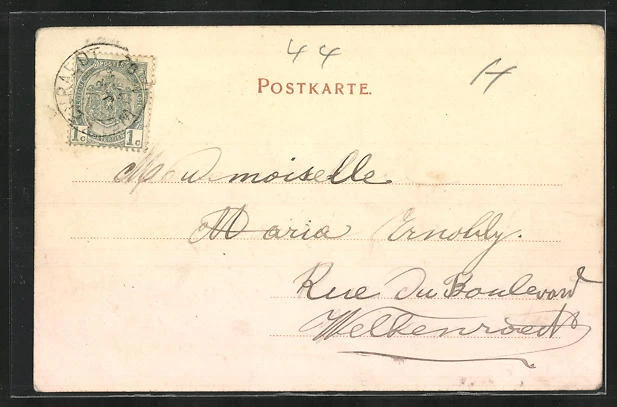 44
H
POSTKARTE.
1c 1c
Mademoiselle
Maria Ernobly.
Rue du Boulevard
Welkenraedt